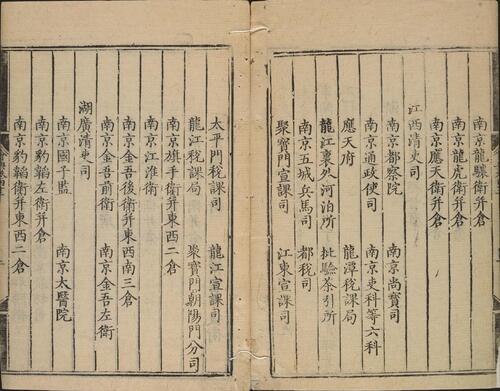 南京龍驤衛并倉
南京龍虎衛并倉
南京應天衛并倉
江西清吏司
南京都察院 南京尚寶司
南京通政使司 南京吏科等六科
應天府 龍潭稅課局
龍江裏外河泊所 批驗茶引所
南京五城兵馬司 都稅司
聚寶門宣課司 江東宣課司
太平門稅課司 龍江宣課司
龍江稅課局 聚寶門朝陽門分司
南京旗手衛并東西二倉
南京江淮衛
南京金吾後衛并東西南三倉
南京金吾前衛 南京金吾左衛
湖廣清吏司
南京國子監 南京太醫院
南京豹韜左衛并倉
南京豹韜衛并東西二倉